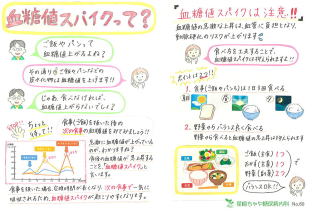 血糖値スパイクって？
ご飯やパンって
血糖値上がるよね？
その通り！ご飯やパンなどの
血糖値を上げます!!
じゃあ、食べなければ、
上がらないでしょ？
ちょっと
待って!!
食事(ご飯)を抜いた後の
次の食事の血糖値を見てみましょう!!
急激に血糖値が上がっている
食後の血糖値が急上昇する
ことを血糖値スパイクと言います。
食事を抜いた場合、
次の食事で一気に
血糖値スパイクが起こりやすくなります。
血糖値スパイクは注意!!
血糖値の急激な上昇は、血管に負担となり
動脈硬化のリスクが上がります
食べ方を工夫することで、
血糖値スパイクは予防できますよ!!
ポイントは2つ!!
1. 食事(ご飯やパンなど)は1日3回食べる
2. 野菜からバランス良く食べる
野菜から食べると血糖値の急上昇は抑えられます!!
ご飯(主食) 1つ
おかず(主菜) 1つ
野菜(副菜) 2つ
バランスOK!!
No.60